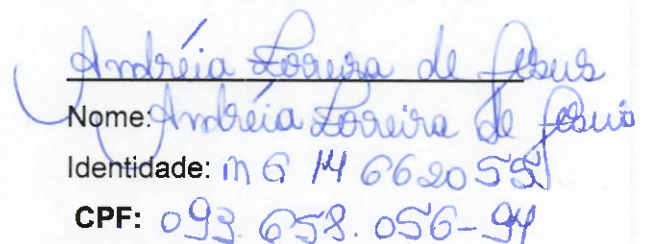 Andréia Loreira de Jesus
Nome: Andréia Loreira de Jesus
Identidade: MG 14 662055
CPF: 093.658.056-94